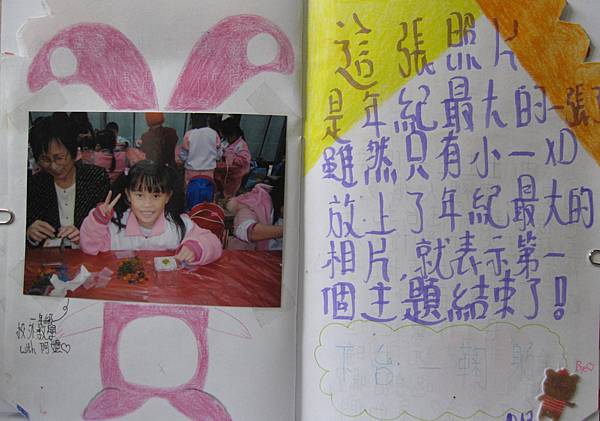 這張照片
是年紀最大的一張了
雖然只有小一XD
放上了年紀最大的
相片,就表示第一
個主題結束了!
下台一鞠躬
校外教學
with 阿嬤♡